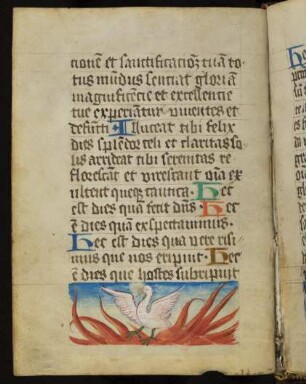 cionē et sanctificacioȝ tuā to
tus mūdus senciat gloriā
magnificēcie et excellencie
tue experiātur viuentes et
defūcti. Illuceat tibi felix
dies splēdor celi et claritas so
lis arrideat tibi serenitas re
florescāt et virescant oīa ex
ultent queqȝ cantica. Hec
est dies quā fecit dn̄s. Hec
ē dies quā expectauimus.
Hec est dies qua vere risi
mus que nos eripuit. Hec
ē dies que hostes subripuit